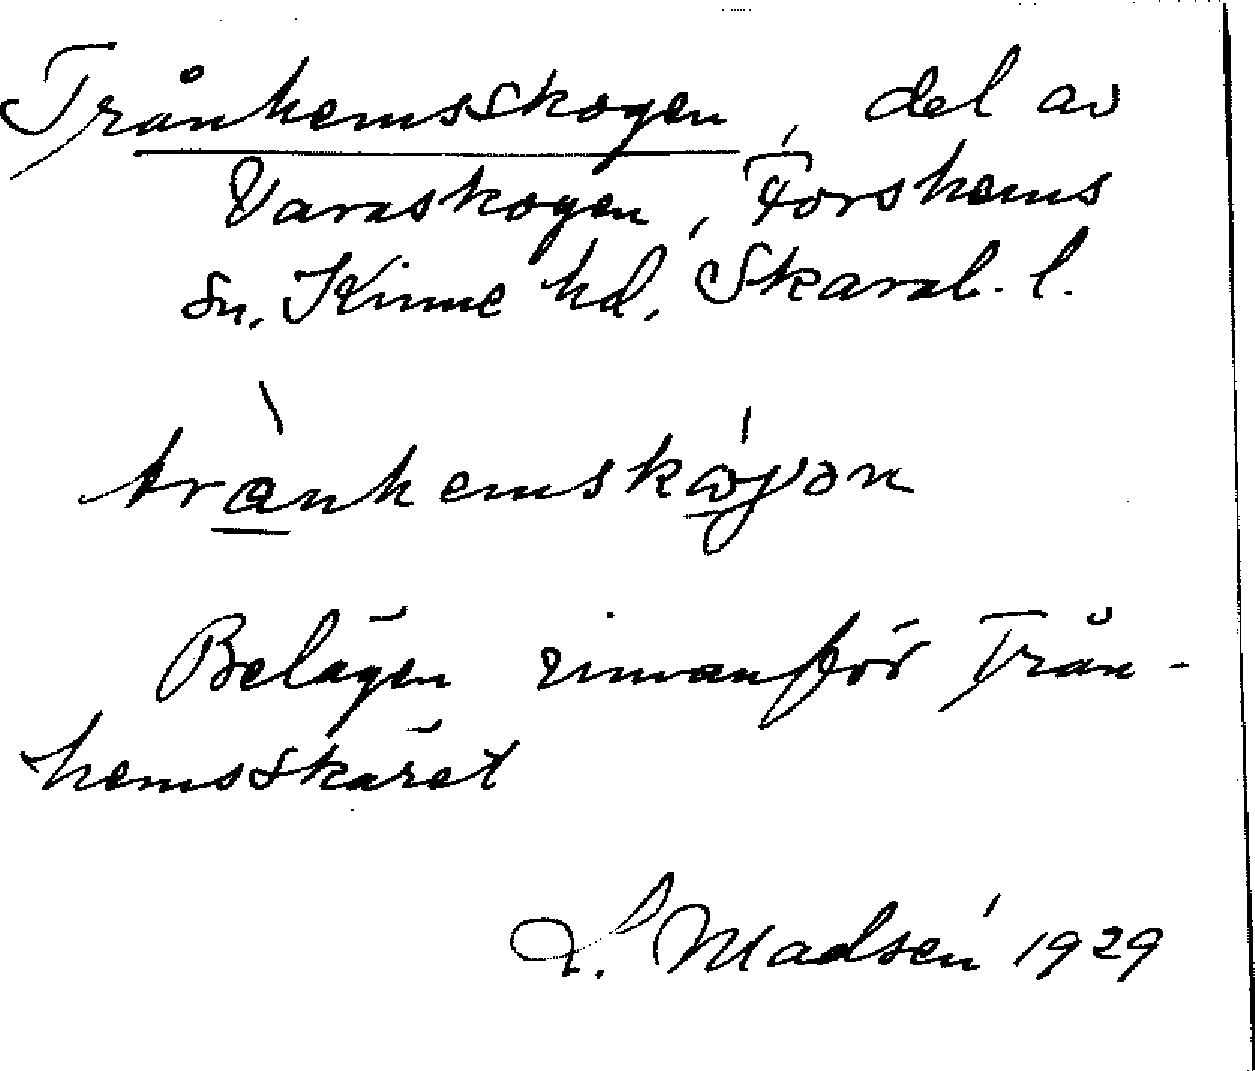 Trånhemsskogen, del av
Varaskogen, Forshems
sn. Kinne hd, Skarab. l.
tranhemskωγən
Belägen innanför Trån-
hemsskäret
L. Madsen 1929